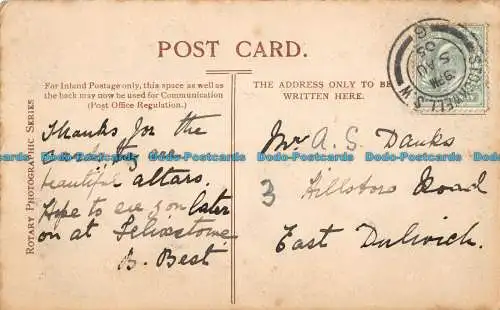 POST CARD.
For Inland Postage only, this space as well as
the back may now be used for Communication
(Post Office Regulation.)
THE ADDRESS ONLY TO BE
WRITTEN HERE.
ROTARY PHOTOGRAPHIC SERIES
STOCKWELL S.W
9 PM
AU 5
05
Thanks for the
they are
beautiful altars.
Hope to see you later
on at Felixstowe
B. Best
Mr A. S. Danks
3 Hillsboro Road
East Dulwich.
Dodo-Postcards Dodo-Postcards Dodo-Postcards Dodo-Postcards